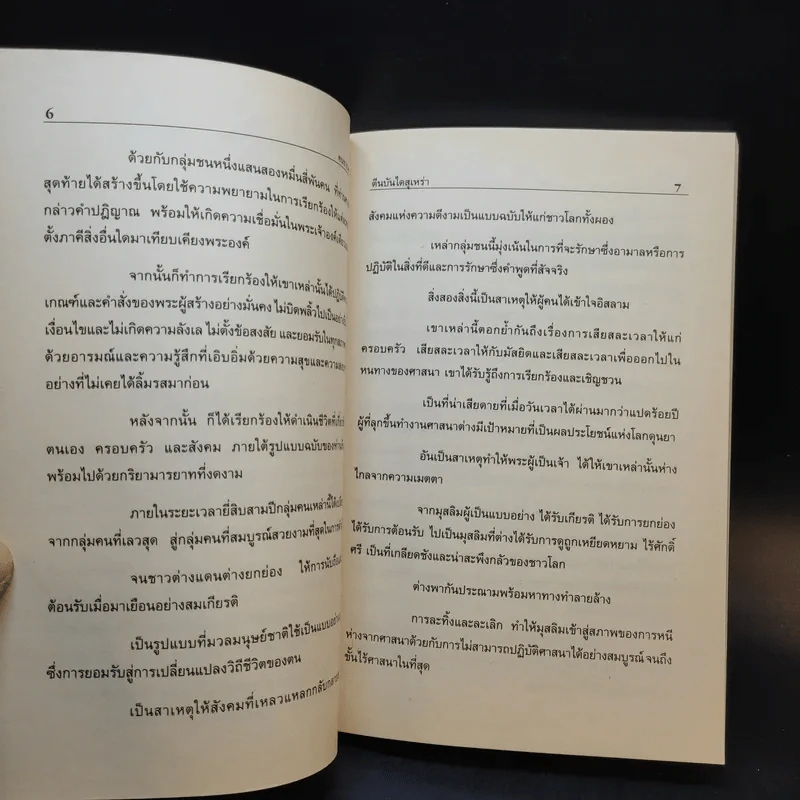 6
ด้วยกับกลุ่มชนหนึ่งแสนสองหมื่นสี่พันคน
สุดท้ายได้สร้างขึ้นโดยใช้ความพยายามในการเรียกร้องให้
กล่าวคำปฏิญาณ พร้อมให้เกิดความเชื่อมั่นในพระเจ้าองค์เดียว
ตั้งภาคีสิ่งอื่นใดมาเทียบเคียงพระองค์
จากนั้นก็ทำการเรียกร้องให้เขาเหล่านั้นได้ปฏิบัติ
เกณฑ์และคำสั่งของพระผู้สร้างอย่างมั่นคง ไม่บิดพลิ้วไปเป็นอย่าง
เงื่อนไขและไม่เกิดความลังเล ไม่ตั้งข้อสงสัย และยอมรับในทุก
ด้วยอารมณ์และความรู้สึกที่เอิบอิ่มด้วยความสุขและความ
อย่างที่ไม่เคยได้ลิ้มรสมาก่อน
หลังจากนั้น ก็ได้เรียกร้องให้ดำเนินชีวิตที่
ตนเอง ครอบครัว และสังคม ภายใต้รูปแบบฉบับของท่าน
พร้อมไปด้วยกริยามารยาทที่งดงาม
ภายในระยะเวลายี่สิบสามปีกลุ่มคนเหล่านี้ได้
จากกลุ่มคนที่เลวสุด สู่กลุ่มคนที่สมบูรณ์สวยงามที่สุดในการ
จนชาวต่างแดนต่างยกย่อง ให้การนับถือ
ต้อนรับเมื่อมาเยือนอย่างสมเกียรติ
เป็นรูปแบบที่มวลมนุษย์ชาติใช้เป็นแบบอย่าง
ซึ่งการยอมรับสู่การเปลี่ยนแปลงวิถีชีวิตของตน
เป็นสาเหตุให้สังคมที่เหลวแหลกกลับกลาย
ตีนบันไดสุเหร่า 7
สังคมแห่งความดีงามเป็นแบบฉบับให้แก่ชาวโลกทั้งผอง
เหล่ากลุ่มชนนี้มุ่งเน้นในการที่จะรักษาซึ่งอามาลหรือการ
ปฏิบัติในสิ่งที่ดีและการรักษาซึ่งคำพูดที่สัจจริง
สิ่งสองสิ่งนี้เป็นสาเหตุให้ผู้คนได้เข้าใจอิสลาม
เขาเหล่านี้ตอกย้ำกันถึงเรื่องการเสียสละเวลาให้แก่
ครอบครัว เสียสละเวลาให้กับมัสยิดและเสียสละเวลาเพื่อออกไปใน
หนทางของศาสนา เขาได้รับรู้ถึงการเรียกร้องและเชิญชวน
เป็นที่น่าเสียดายที่เมื่อวันเวลาได้ผ่านมากว่าแปดร้อยปี
ผู้ที่ลุกขึ้นทำงานศาสนาต่างมีเป้าหมายที่เป็นผลประโยชน์แห่งโลกดุนยา
อันเป็นสาเหตุทำให้พระผู้เป็นเจ้า ได้ให้เขาเหล่านั้นห่าง
ไกลจากความเมตตา
จากมุสลิมผู้เป็นแบบอย่าง ได้รับเกียรติ ได้รับการยกย่อง
ได้รับการต้อนรับ ไปเป็นมุสลิมที่ต่างได้รับการดูถูกเหยียดหยาม ไร้ศักดิ์
ศรี เป็นที่เกลียดชังและน่าสะพึงกลัวของชาวโลก
ต่างพากันประณามพร้อมหาทางทำลายล้าง
การละทิ้งและละเลิก ทำให้มุสลิมเข้าสู่สภาพของการหนี
ห่างจากศาสนาด้วยกับการไม่สามารถปฏิบัติศาสนาได้อย่างสมบูรณ์ จนถึง
ขั้นไร้ศาสนาในที่สุด